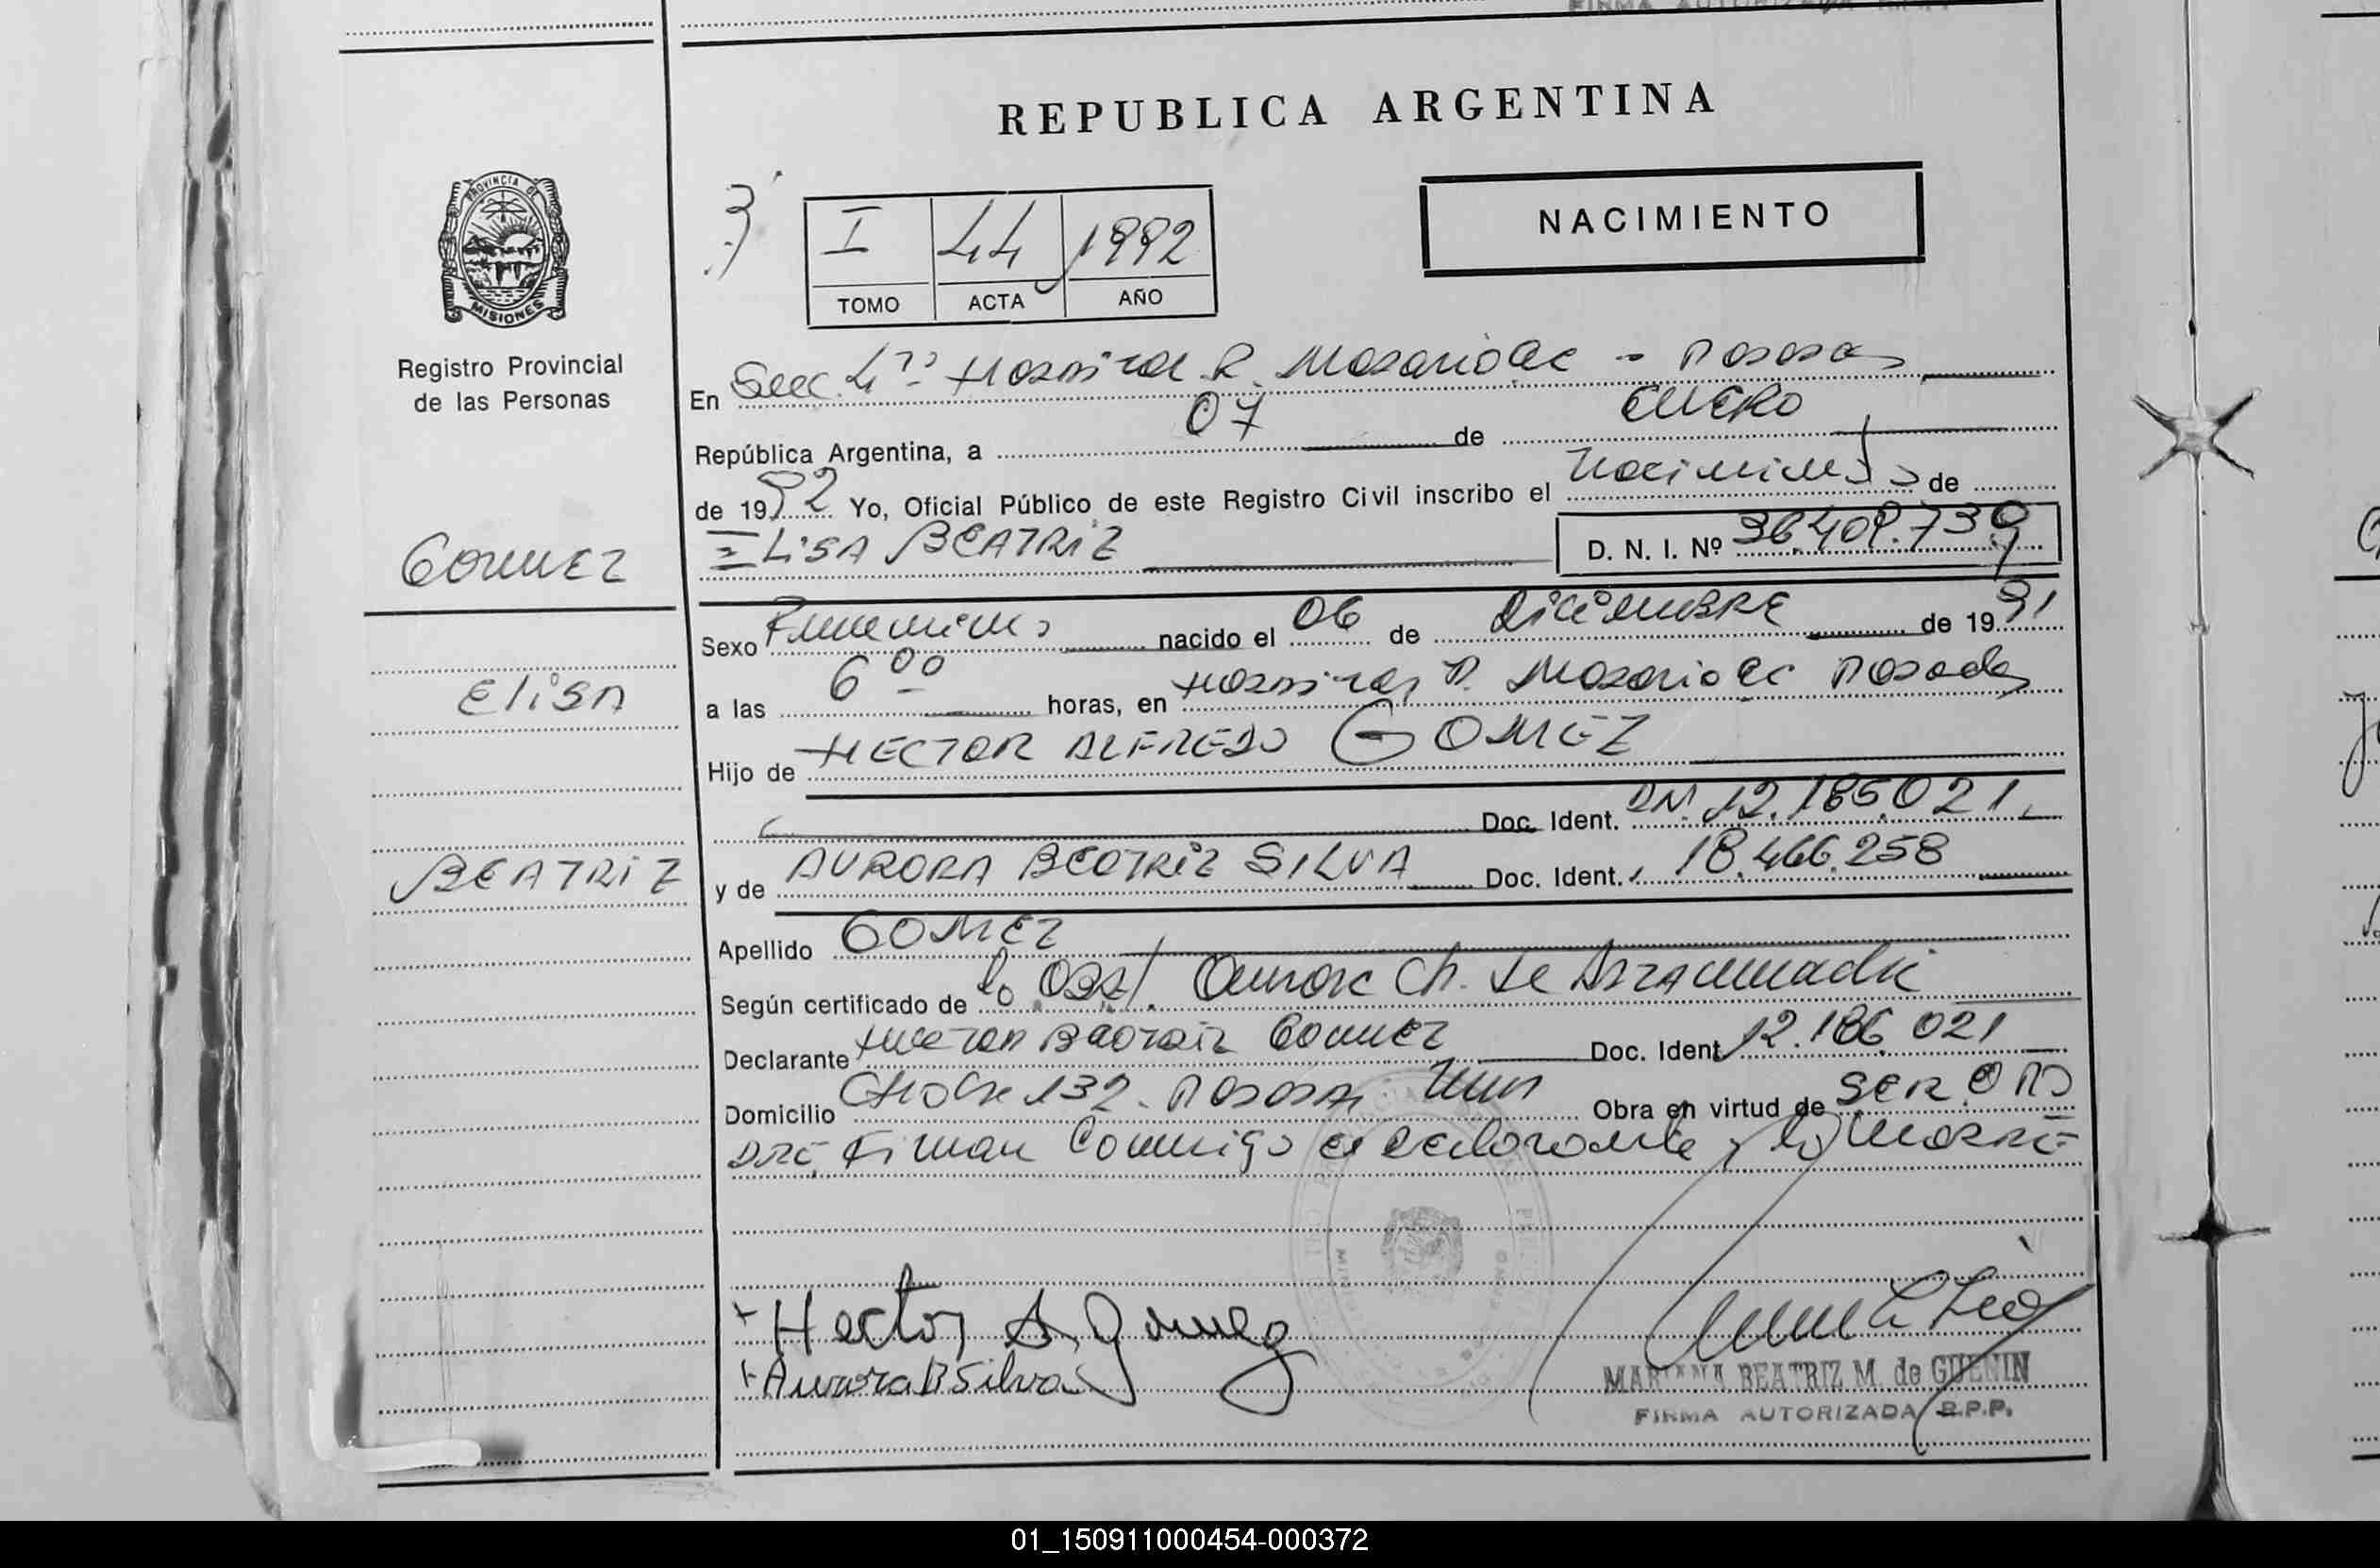 FIRMA AUTORIZADA R.P.P.
REPUBLICA ARGENTINA
PROVINCIA DE
MISIONES
Registro Provincial
de las Personas
I 44 1992
TOMO ACTA AÑO
NACIMIENTO
En Secc. 4ta Hospital R. Madariaga - Posadas
República Argentina, a 07 de ENERO
de 1992 Yo, Oficial Público de este Registro Civil inscribo el nacimiento de
ELISA BEATRIZ D. N. I. Nº 36.409.739
GOMEZ
Sexo Femenino nacido el 06 de Diciembre de 1991
ELISA
a las 6 00 horas, en Hospital R. Madariaga Posadas
Hijo de HECTOR ALFREDO GOMEZ
Doc. Ident. DNI 12.186.021
BEATRIZ
y de AURORA BEATRIZ SILVA Doc. Ident. 18.466.258
Apellido GOMEZ
Según certificado de la Obst. Ch. de
Declarante Gomez Doc. Ident 12.186.021
Domicilio 132 - Posadas Obra en virtud de SER EL PA
DRE, Firman Conmigo el declarante y la MADRE
Hector A Gomez
Aurora B Silva
MARIANA BEATRIZ M. de GUENIN
FIRMA AUTORIZADA R.P.P.
01_150911000454-000372